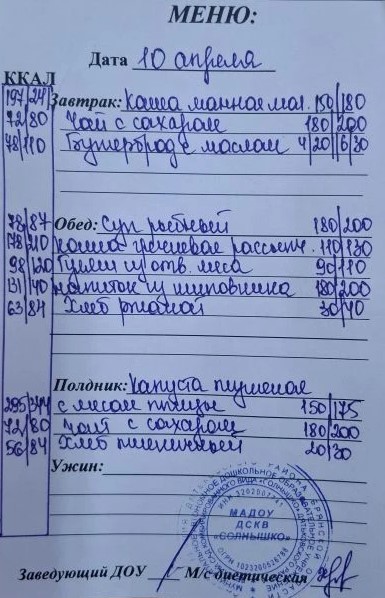 МЕНЮ:
Дата 10 апреля
ККАЛ
197/24 Завтрак: Каша манная мол. 150/180
72/80 Чай с сахаром 180/200
78/110 Бутерброд с маслом 4/20//6/30
78/87 Обед: Суп рыбный 180/200
178/210 каша гречневая рассыпч. 110/130
98/120 Гуляш из отв. мяса 90/110
131/140 напиток из шиповника 180/200
63/84 Хлеб ржаной 30/40
Полдник: Капуста тушеная
295/344 с мясом птицы 150/175
72/80 Чай с сахаром 180/200
56/84 Хлеб пшеничный 20/30
Ужин:
МАДОУ
ДСКВ
«СОЛНЫШКО»
ОГРН 1023200526788
Заведующий ДОУ М/с диетическая